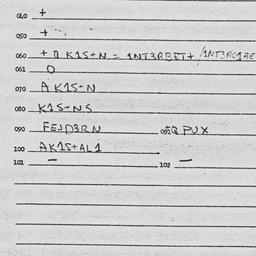 040 +
050 +
060 + A K15+N = 1NT3RBET+/1NT3RC1RE
061 O
070 A K15+N
080 K15+NS
090 FEJD3RN 095 Q PUX
100 AK15+AL1
101 — 102 —